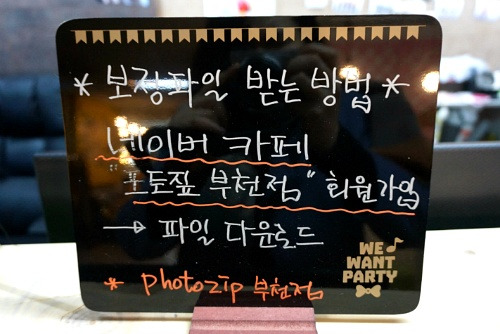 * 보정파일 받는 방법 *
네이버 카페
포토짚 부천점" 회원가입
→ 파일 다운로드
* photozip 부천점
WE
WANT
PARTY